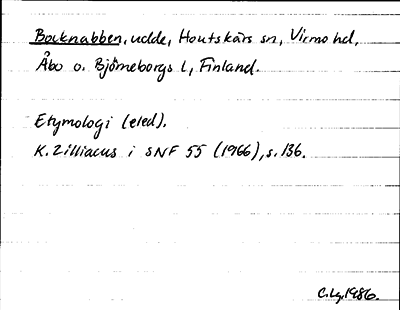 Bocknabben, udde, Houtskärs sn, Virmo hd,
Åbo o. Björneborgs l, Finland.
Etymologi (eled).
K. Zilliacus i SNF 55 (1966), s. 136.
C.Lg. 1986.